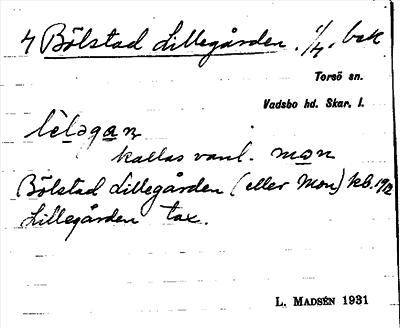 4 Bölstad Lillegården. 1/4. bek
Torsö sn.
Vadsbo hd. Skar. l.
lèlǝgan
kallas vanl. mon
Bölstad Lillegården (eller Mon) kb. 1912
Lillegården tax.
L. MADSÉN 1931